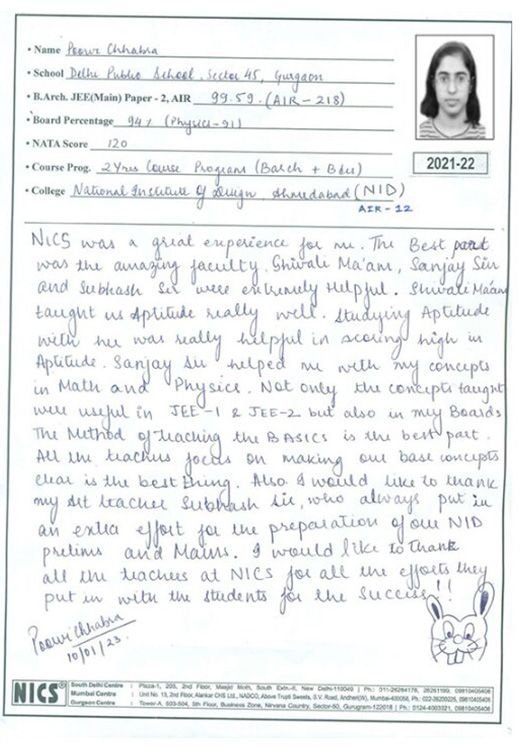 • Name Poorvi Chhabra
• School Delhi Public School, Sector 45, Gurgaon
• B.Arch. JEE(Main) Paper - 2, AIR 99.59. (AIR-218)
• Board Percentage 94% (Physics-91)
• NATA Score 120
• Course Prog. 2 Yrs Course Program (Barch + Bdes)
• College National Institute of Design, Ahmedabad (NID)
AIR-12
2021-22
NICS was a great experience for me. The Best part
was the amazing faculty. Shivali Ma'am, Sanjay Sir
and Subhash Sir were extremely Helpful. Shivali Ma'am
taught us Aptitude really well. Studying Aptitude
with her was really helpful in scoring high in
Aptitude. Sanjay Sir helped me with my concepts
in Math and Physics. Not only the concepts taught
were useful in JEE-1 & JEE-2 but also in my Boards
The Method of teaching the BASICS is the best part.
All the teachers focus on making our base concepts
clear is the best thing. Also I would like to thank
my Art teacher Subhash Sir, who always put in
an extra effort for the preparation of our NID
prelims and Mains. I would like to Thank
all the teachers at NICS for all the efforts they
put in with the students for the Success!!
Poorvi Chhabra
10/01/23.
NICS
South Delhi Centre : Plaza-1, 205, 2nd Floor, Masjid Moth, South Extn.-II, New Delhi-110049 | Ph.: 011-26264176, 26261199, 09810405408
Mumbai Centre : Unit No. 13, 2nd Floor, Alankar CHS Ltd., NADCO, Above Trupti Sweets, S.V. Road, Andheri(W), Mumbai-400058, Ph.: 022-26200225, 09810405408
Gurgaon Centre : Tower-A, 503-504, 5th Floor, Business Zone, Nirvana Country, Sector-50, Gurugram-122018 | Ph.: 0124-4003321, 09810405408